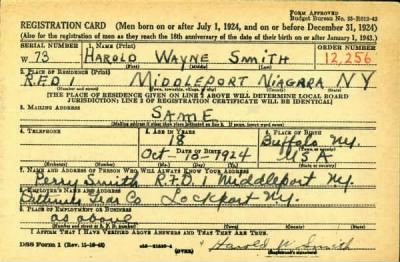 FORM APPROVED
REGISTRATION CARD (Men born on or after July 1, 1924, and on or before December 31, 1924)
(Also for the registration of men as they reach the 18th anniversary of the date of their birth on or after January 1, 1943.)
SERIAL NUMBER 1. NAME (Print) ORDER NUMBER
W 73 HAROLD WAYNE SMITH 12,256
(First) (Middle) (Last)
2. PLACE OF RESIDENCE (Print)
R.F.D. 1 MIDDLEPORT NIAGARA NY
(Number and street) (Town, township, village, or city) (County) (State)
[THE PLACE OF RESIDENCE GIVEN ON LINE 2 ABOVE WILL DETERMINE LOCAL BOARD
JURISDICTION; LINE 2 OF REGISTRATION CERTIFICATE WILL BE IDENTICAL]
3. MAILING ADDRESS
SAME
4. TELEPHONE 5. AGE IN YEARS 6. PLACE OF BIRTH
18 Buffalo N.Y.
DATE OF BIRTH (Town or county)
Oct-18-1924 U S A
(Mo.) (Day) (Yr.) (State or country)
7. NAME AND ADDRESS OF PERSON WHO WILL ALWAYS KNOW YOUR ADDRESS
Perry Smith R.F.D. 1 Middleport N.Y.
8. EMPLOYER'S NAME AND ADDRESS
Gear Co Lockport N.Y.
9. PLACE OF EMPLOYMENT OR BUSINESS
as above
(Number and street or R. F. D. number) (Town) (County) (State)
I AFFIRM THAT I HAVE VERIFIED ABOVE ANSWERS AND THAT THEY ARE TRUE.
DSS Form 1 (Rev. 11-16-42) (OVER) Harold W. Smith